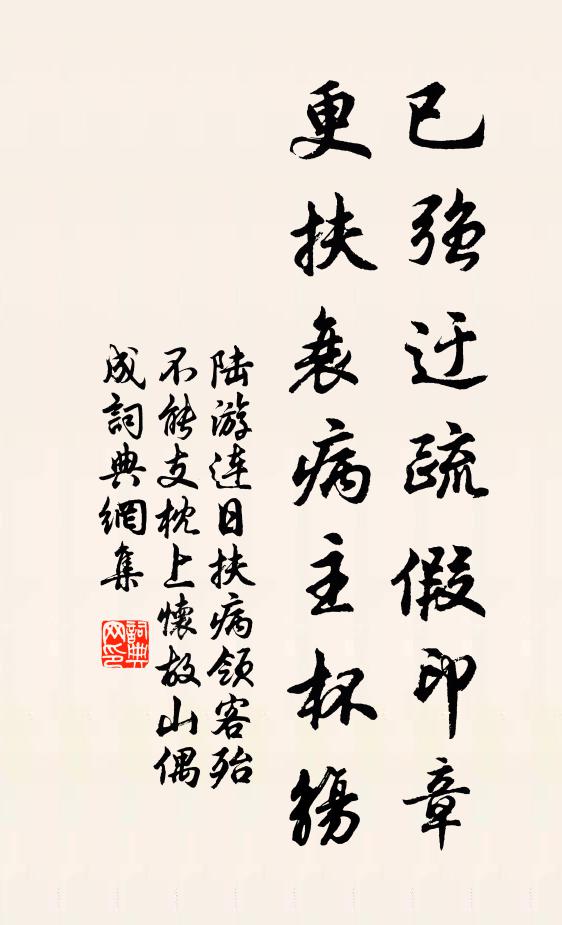 已強迂疏假印章
更扶衰病主杯觴
陆游连日扶病领客殆
不能支枕上懷故山偶
成詞典網集
詞典
网印